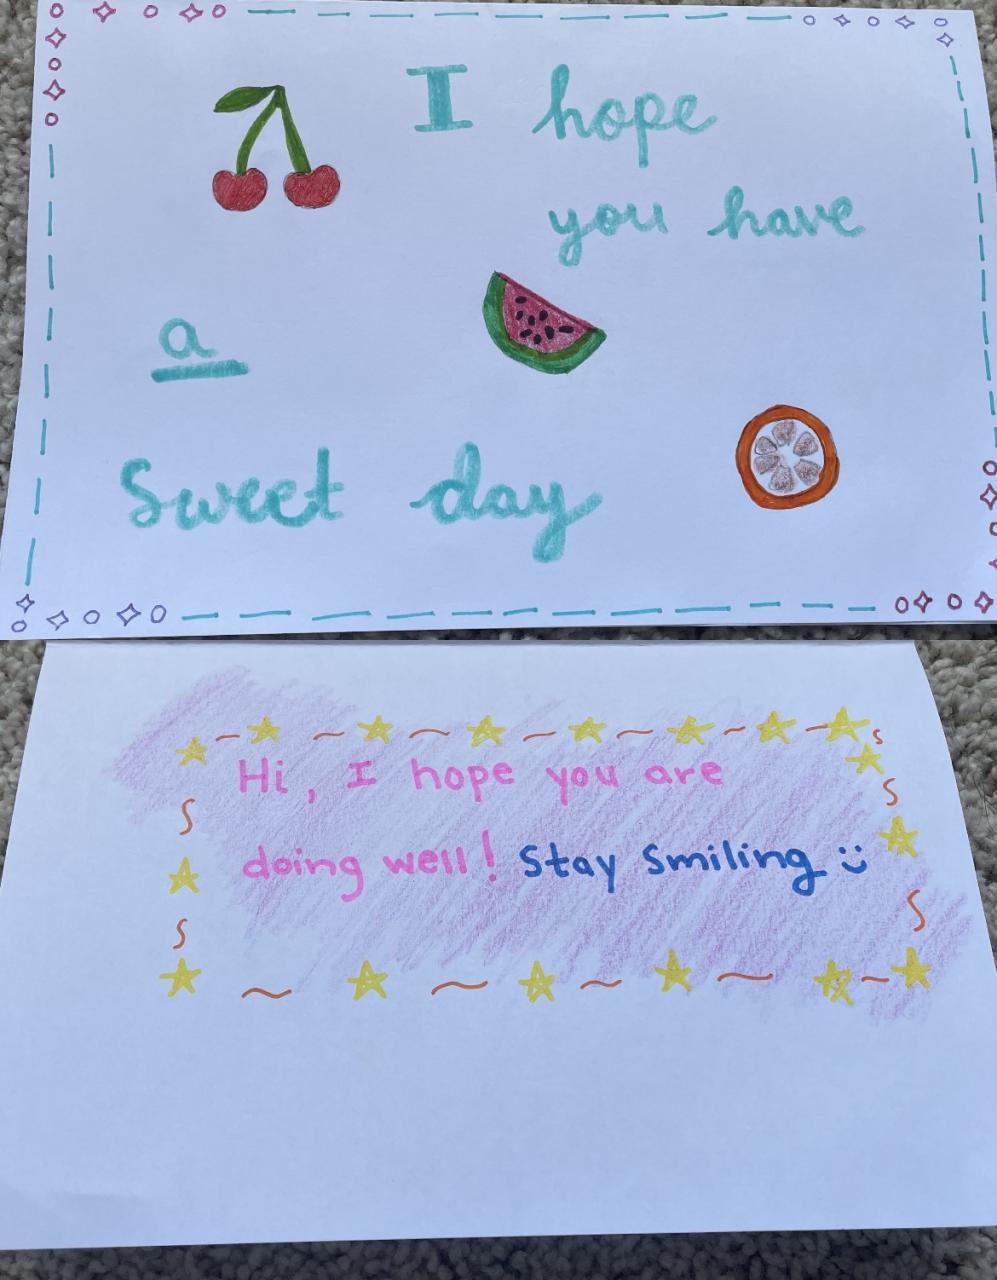 I hope
you have
a
Sweet day
Hi, I hope you are
doing well! Stay Smiling :)